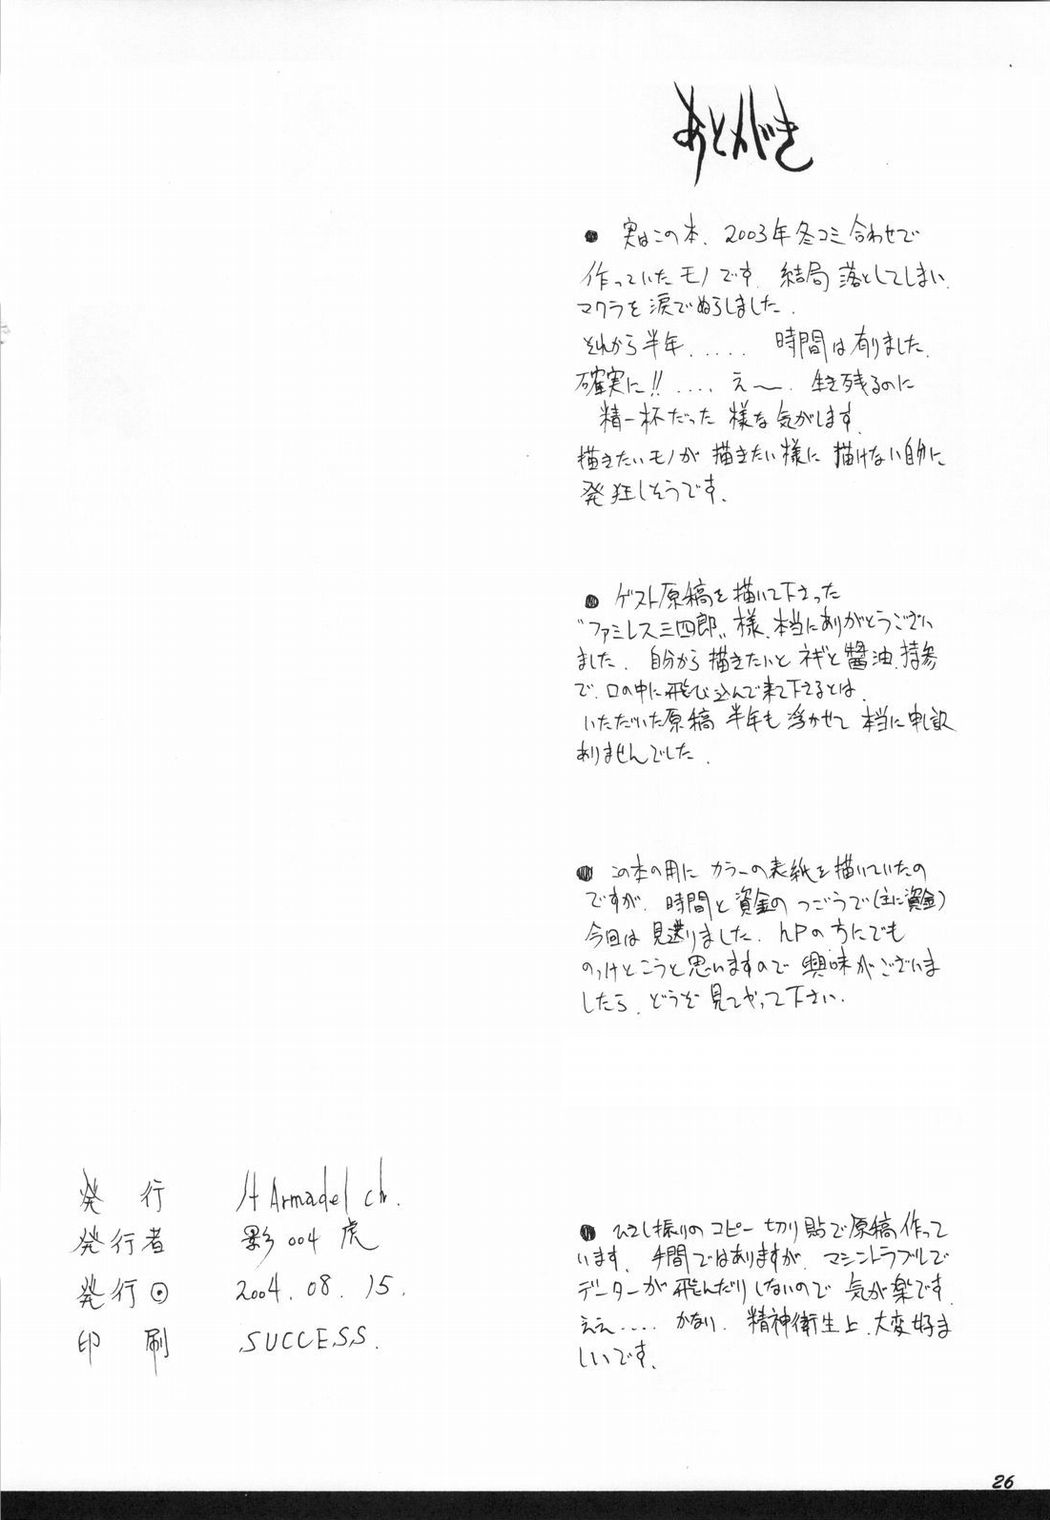 あとがき
● 実はこの本、2003年冬コミ合わせで
作っていたモノです。結局落としてしまい、
マクラを涙でぬらしました。
それから半年、.... 時間は有りました。
確実に!! .... え〜、生き残るのに
精一杯だった様な気がします。
描きたいモノが描きたい様に描けない自分に
発狂しそうです。
● ゲスト原稿を描いて下さった
"ファミレス三四郎"様、本当にありがとうござい
ました。自分から描きたいとネギと醤油、持参
で、口の中に飛び込んで来て下さるとは、
いただいた原稿半年も浮かせて本当に申し訳
ありませんでした。
● この本の用にカラーの表紙を描いていたの
ですが、時間と資金のつごうで(主に資金)
今回は見送りました。HPの方にでも
のっけとこうと思いますので興味がございま
したら、どうぞ見てやって下さい。
● ひさし振りのコピー切り貼で原稿作って
います。手間ではありますが、マシントラブルで
データーが飛んだりしないので気が楽です。
ええ.... かなり、精神衛生上、大変好ま
しいです。
発行 Armadel ch.
発行者 影004虎
発行日 2004.08.15.
印刷 SUCCESS.
26